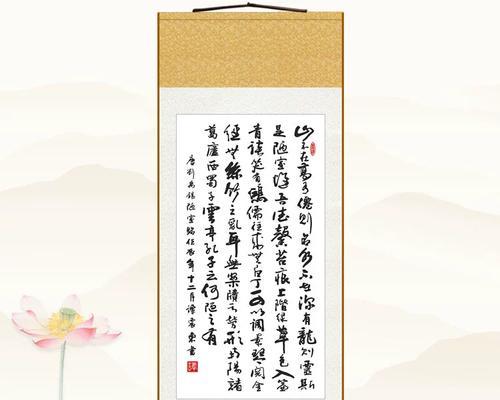 山不在高有僊則名水不在深有龍則靈斯
是陋室惟吾德馨苔痕上階綠草色入簾
青談笑有鴻儒往來無白丁可以調素琴閱金
經無絲竹之亂耳無案牘之勞形南陽諸
葛廬西蜀子雲亭孔子云何陋之有
唐劉禹錫陋室銘年十二月譚震東書
譚